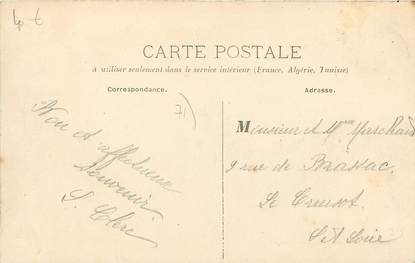 CARTE POSTALE
à utiliser seulement dans le service intérieur (France, Algérie, Tunisie)
Correspondance.
Adresse.
71
et affectueux
Souvenir
Clerc
Monsieur et Mme Marchand
9 rue de Brassac.
Le Creusot
S et Loire